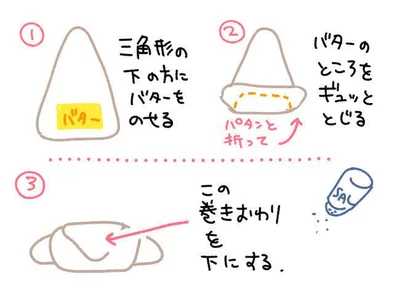 ①
三角形の
下の方に
バターを
のせる
バター
②
バターの
ところを
ギュッと
とじる
パタンと
折って
③
この
巻きおわり
を
下にする.
SAL